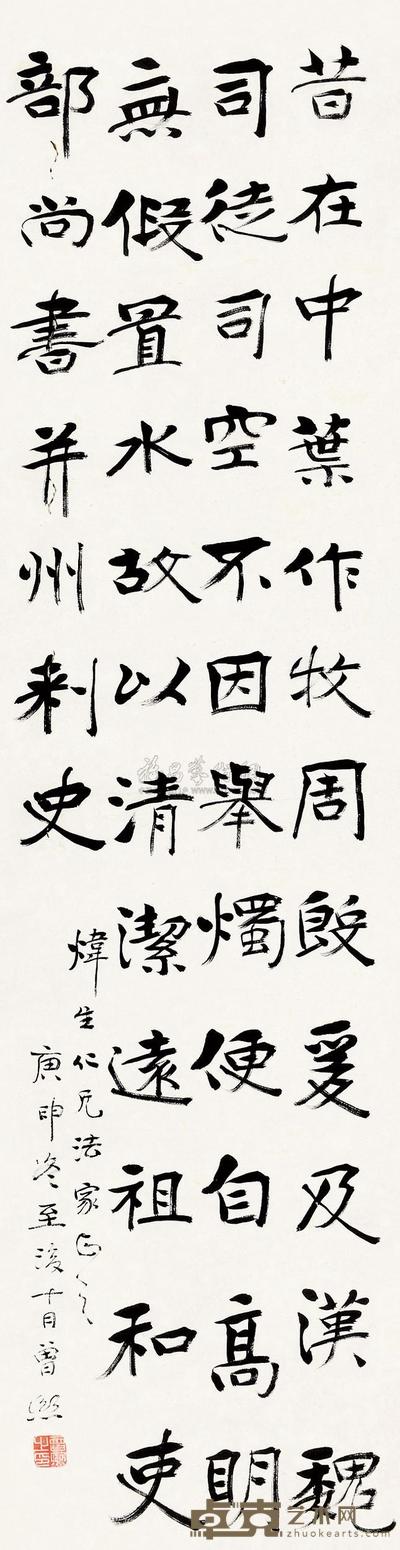 昔在中葉作牧周殷爰及漢魏
司徒司空不因舉燭便自高明
無假置水故以清潔遠祖和吏
部尚書并州刺史
煒生仁兄法家正之
庚申冬至後十日曾熙
卓克艺术网
zhuokearts.com